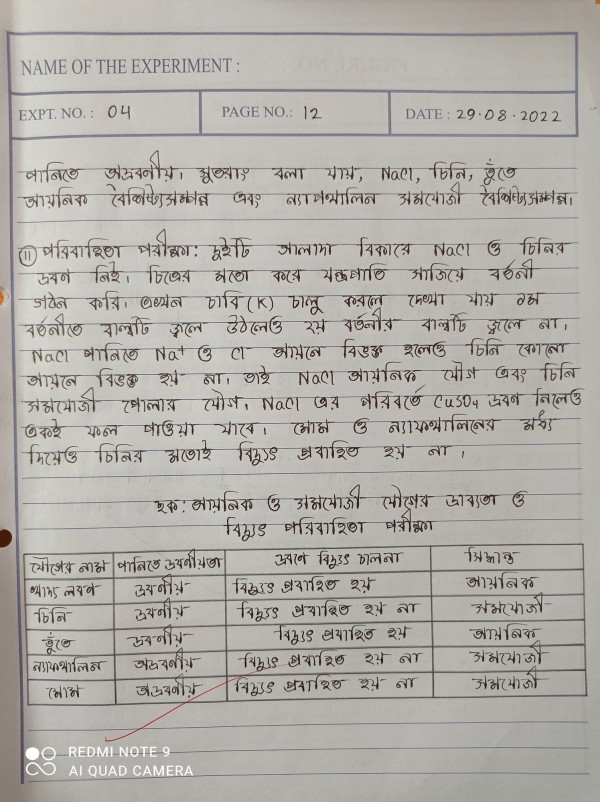 NAME OF THE EXPERIMENT :
EXPT. NO. : 04 PAGE NO.: 12 DATE : 29.08.2022
পানিতে অদ্রবনীয়। সুতরাং বলা যায়, NaCl, চিনি, তুঁতে
আয়নিক বৈশিষ্ট্যসম্পন্ন এবং ন্যাপথালিন সমযোজী বৈশিষ্ট্যসম্পন্ন।
(ii) পরিবাহিতা পরীক্ষা: দুইটি আলাদা বিকারে NaCl ও চিনির
দ্রবণ নিই। চিত্রের মতো করে যন্ত্রপাতি সাজিয়ে বর্তনী
গঠন করি। এখন চাবি (K) চালু করলে দেখা যায় ১ম
বর্তনীতে বাল্বটি জ্বলে উঠলেও ২য় বর্তনীর বাল্বটি জ্বলে না।
NaCl পানিতে Na+ ও Cl- আয়নে বিভক্ত হলেও চিনি কোনো
আয়নে বিভক্ত হয় না। তাই NaCl আয়নিক যৌগ এবং চিনি
সমযোজী পোলার যৌগ। NaCl এর পরিবর্তে CuSO4 দ্রবণ নিলেও
একই ফল পাওয়া যাবে। মোম ও ন্যাফথালিনের মধ্য
দিয়েও চিনির মতোই বিদ্যুৎ প্রবাহিত হয় না।
ছক: আয়নিক ও সমযোজী যৌগের দ্রাব্যতা ও
বিদ্যুৎ পরিবাহিতা পরীক্ষা
যৌগের নাম পানিতে দ্রবনীয়তা দ্রবণে বিদ্যুৎ চালনা সিদ্ধান্ত
খাদ্য লবণ দ্রবনীয় বিদ্যুৎ প্রবাহিত হয় আয়নিক
চিনি দ্রবনীয় বিদ্যুৎ প্রবাহিত হয় না সমযোজী
তুঁতে দ্রবনীয় বিদ্যুৎ প্রবাহিত হয় আয়নিক
ন্যাফথালিন অদ্রবনীয় বিদ্যুৎ প্রবাহিত হয় না সমযোজী
মোম অদ্রবনীয় বিদ্যুৎ প্রবাহিত হয় না সমযোজী
REDMI NOTE 9
AI QUAD CAMERA